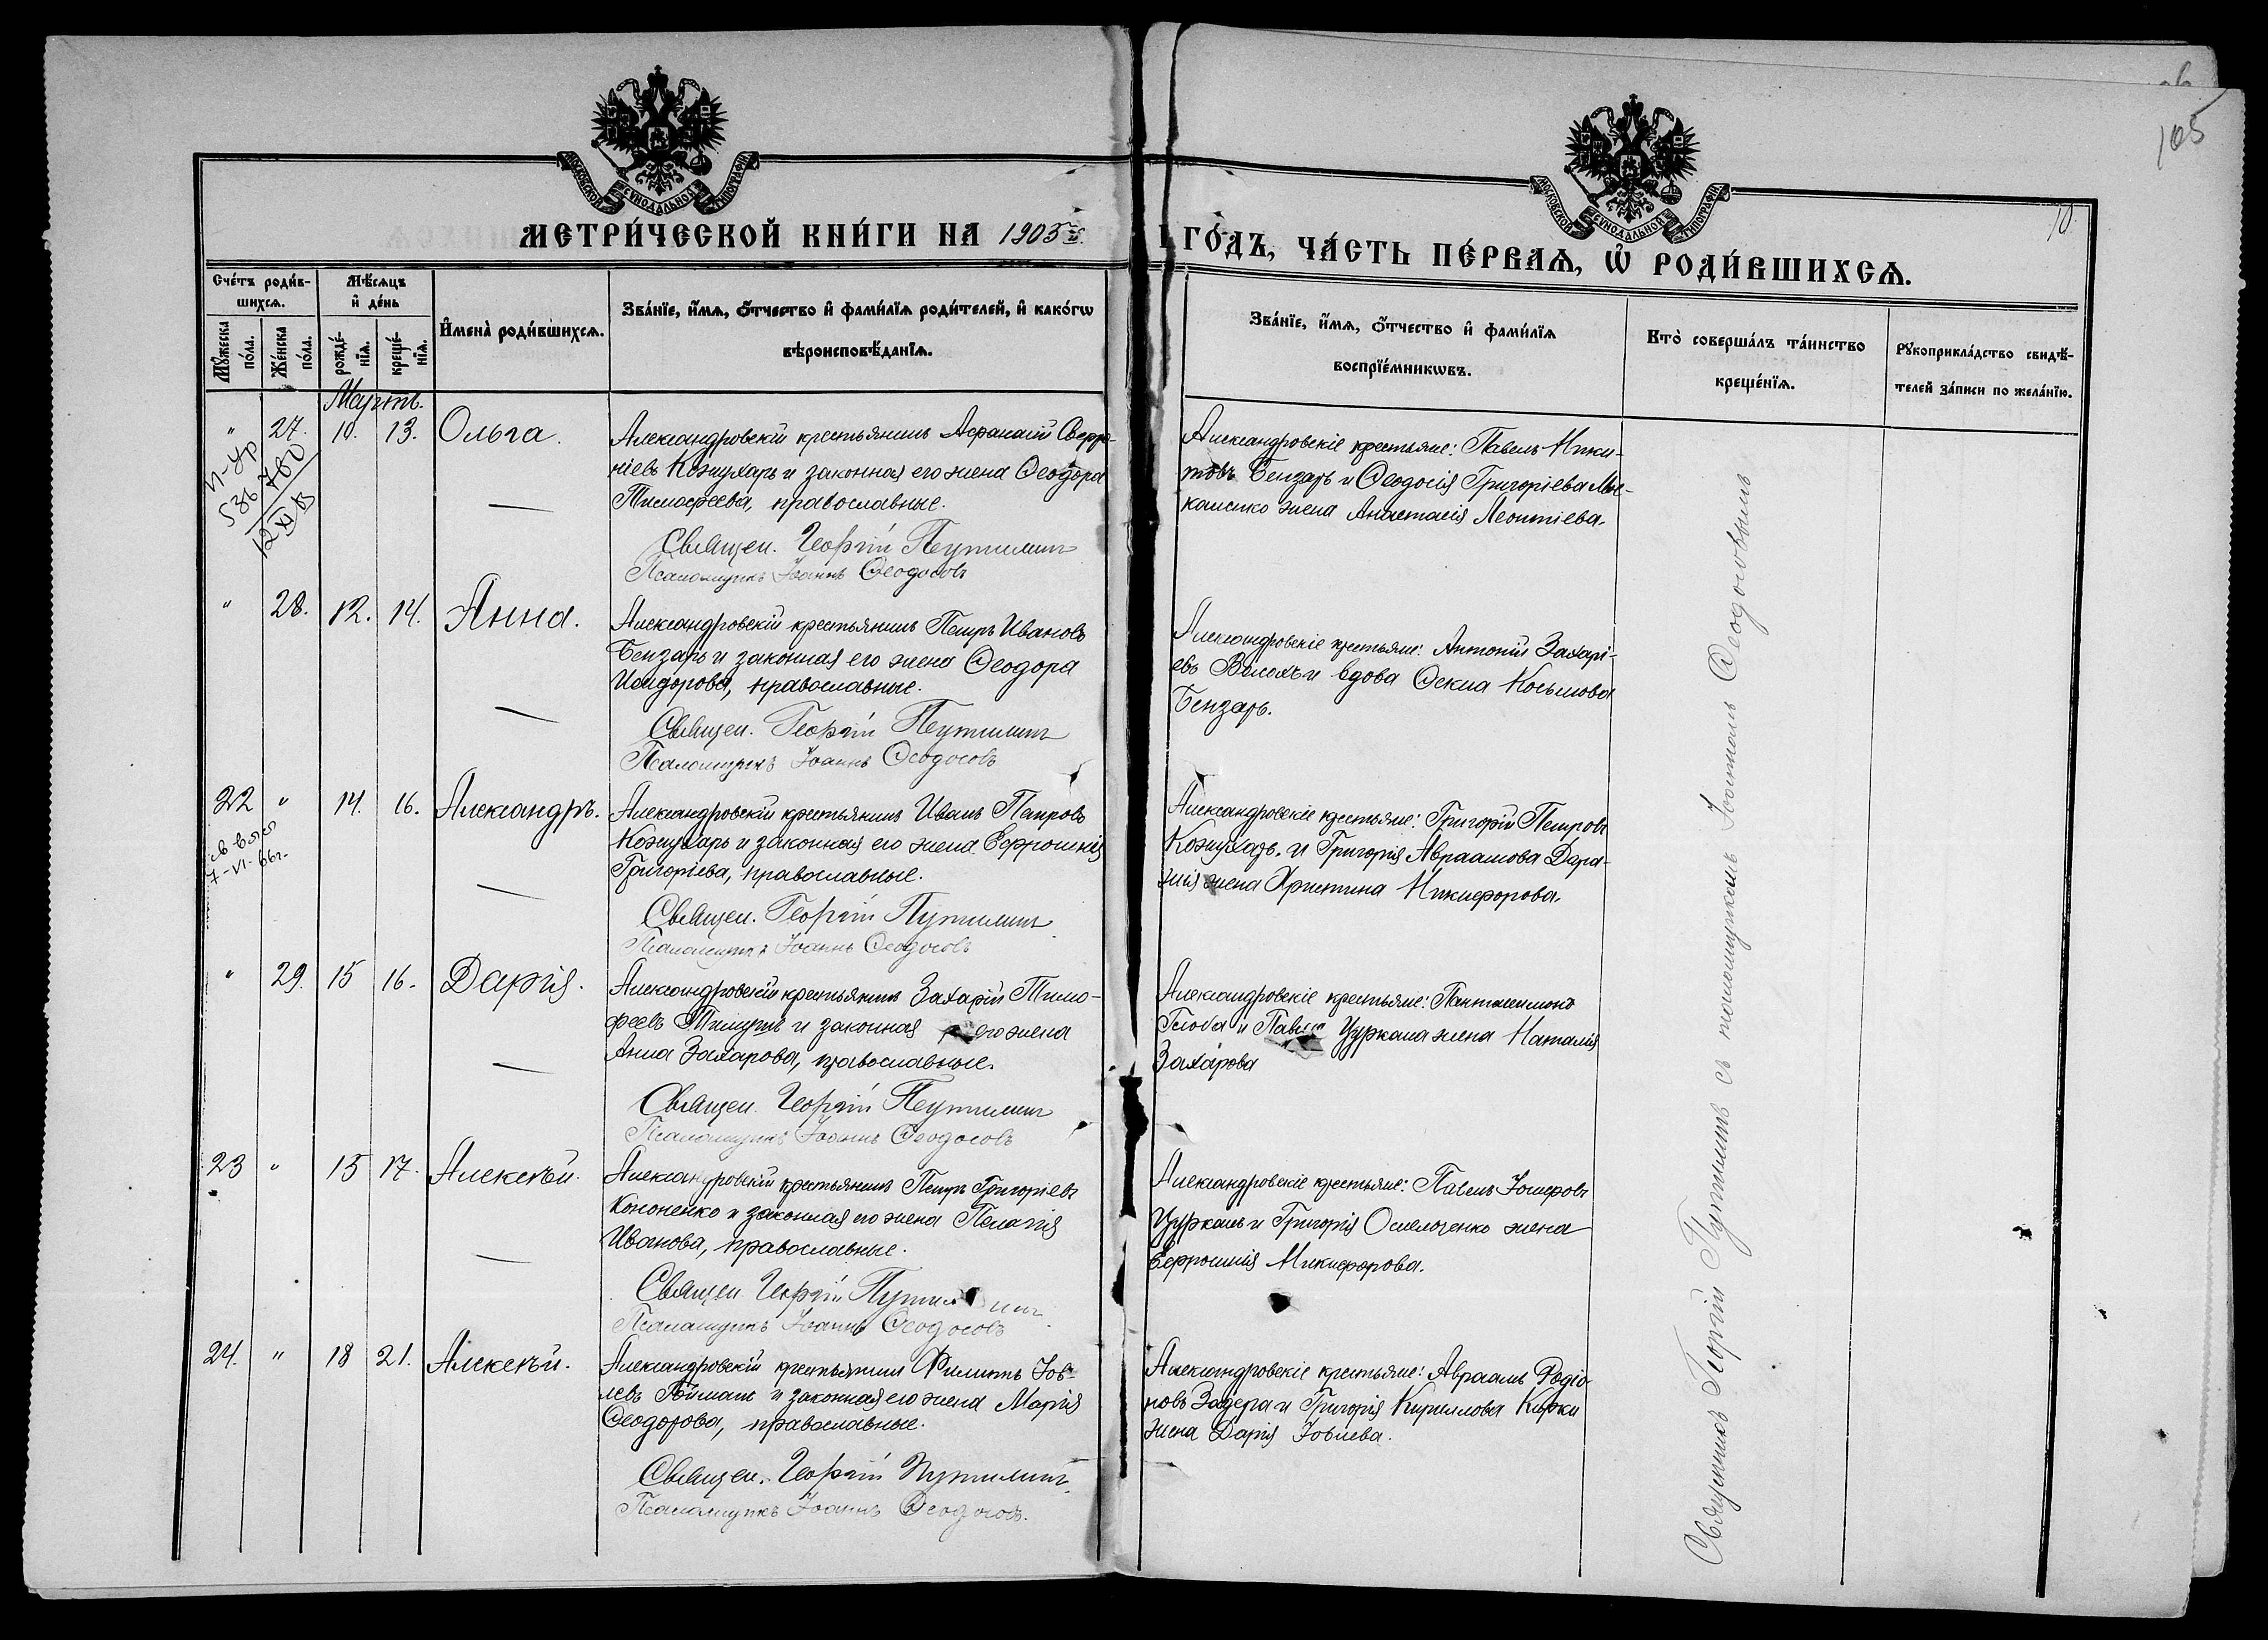 105
10.
МОСКОВСКОЙ СѴНОДАЛЬНОЙ ТИПОГРАФІИ
МОСКОВСКОЙ СѴНОДАЛЬНОЙ ТИПОГРАФІИ
МЕТРИ́ЧЕСКОЙ КНИ́ГИ НА 1905й
ГО́ДЪ, ЧА́СТЬ ПЕ́РВАѦ, Ѡ҆ РОДИ́ВШИХСѦ.
Сче́тъ роди́в-
шихсѧ.
Мꙋ́жеска
по́ла.
Же́нска
по́ла.
Мѣ́сѧцъ
и҆ де́нь
рожде́-
нїѧ.
креще́-
нїѧ.
И҆мена̀ роди́вшихсѧ.
Зва́нїе, и҆́мѧ, ѻ҆́тчество и҆ фами́лїѧ роди́телей, и҆ како́гѡ
вѣроисповѣ́данїѧ.
Зва́нїе, и҆́мѧ, ѻ҆́тчество и҆ фами́лїѧ
воспрїе́мникѡвъ.
Кто̀ соверша́лъ та́инство
креще́нїѧ.
Рꙋкоприкла́дство свидѣ́-
телей за́писи по жела́нїю.
Мартъ.
" 27. 10. 13. Ольга.
Александровскій крестьянинъ Афанасій Севері-
ніевъ Кожухарь и законная его жена Ѳеодора
Тимоѳеева, православные.
Священ. Георгій Путилинъ
Псаломщикъ Іоаннъ Ѳеодосовъ
Александровскіе крестьяне: Павелъ Ники-
товъ Бензарь и Ѳеодосія Григоріева
жена Анастасія Леонтіева.
" 28. 12. 14. Анна.
Александровскій крестьянинъ Петръ Ивановъ
Бензарь и законная его жена Ѳеодора
Исидорова, православные.
Священ. Георгій Путилинъ
Псаломщикъ Іоаннъ Ѳеодосовъ
Александровскіе крестьяне: Антоній Захарі-
евъ Волохъ и вдова Ѳекла Косьмова
Бензарь.
22 " 14. 16. Александръ.
7-VI-66г.
Александровскій крестьянинъ Иванъ Петровъ
Кожухарь и законная его жена Евфросинія
Григоріева, православные.
Священ. Георгій Путилинъ
Псаломщикъ Іоаннъ Ѳеодосовъ
Александровскіе крестьяне: Григорій Петровъ
Кожухарь и Григорія Авраамова Дара-
жена Христина Никифорова.
" 29. 15 16. Дарія.
Александровскій крестьянинъ Захарій Тимо-
феевъ и законная его жена
Анна Захарова, православные.
Священ. Георгій Путилинъ
Псаломщикъ Іоаннъ Ѳеодосовъ
Александровскіе крестьяне: Пантелеимонъ
Глоба и Павла Цуркана жена Наталія
Захарова
23 " 15 17. Алексѣй.
Александровскій крестьянинъ Петръ Григоріевъ
Кононенко и законная его жена Пелагія
Иванова, православные.
Священ. Георгій Путилинъ
Псаломщикъ Іоаннъ Ѳеодосовъ
Александровскіе крестьяне: Павелъ Іосифовъ
Цурканъ и Григорія Омельченко жена
Евфросинія Никифорова.
24. " 18 21. Алексѣй.
Александровскій крестьянинъ Филиппъ Іов-
левъ и законная его жена Марія
Ѳеодорова, православные.
Священ. Георгій Путилинъ
Псаломщикъ Іоаннъ Ѳеодосовъ.
Александровскіе крестьяне: Авраамъ Родіо-
новъ Задера и Григорія Кириллова
жена Дарія Іовлева.
Священникъ Георгій Путилинъ съ псаломщикомъ Іоанномъ Ѳеодосовымъ